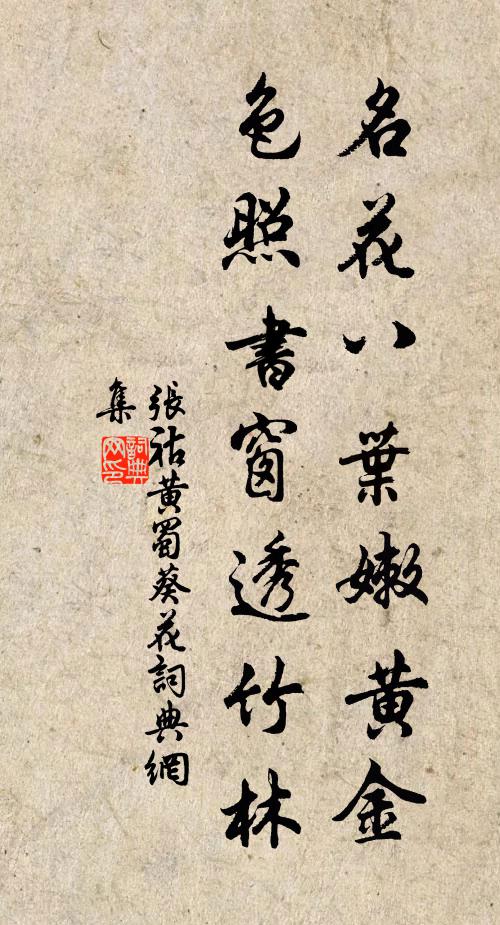 名花八葉嫩黃金
色照書窗透竹林
張祜黃蜀葵花詞典網
集
詞典
网印